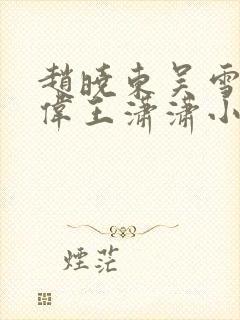 趙曉東吴雪
偉王瀟瀟小
煙茫